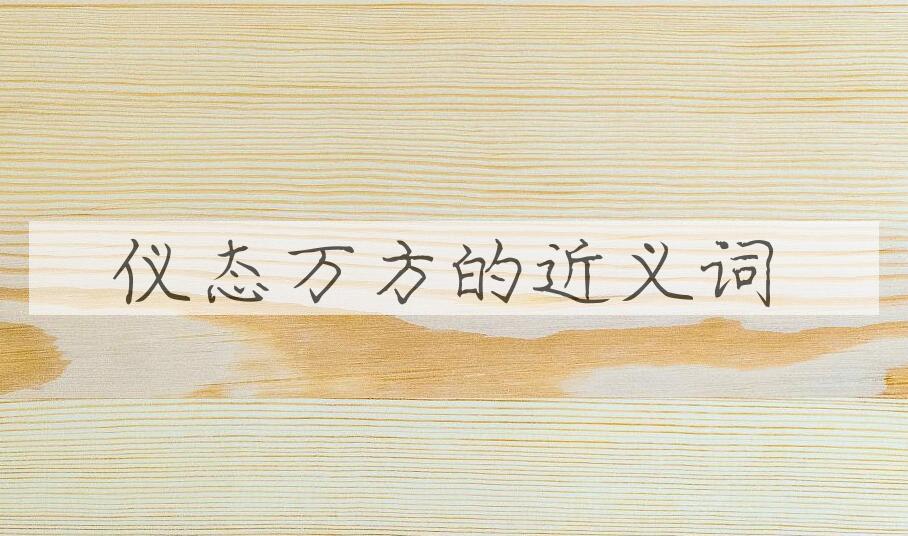 仪态万方的近义词